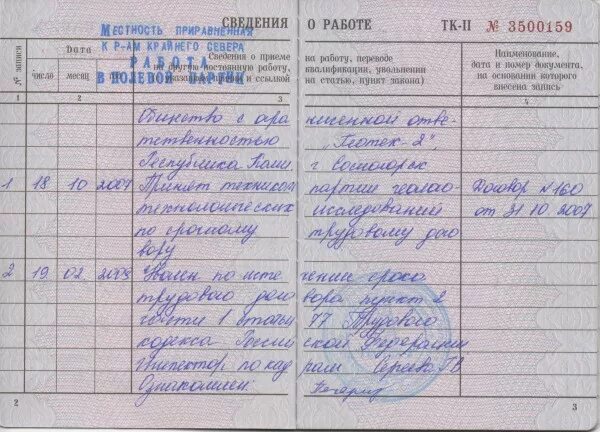 СВЕДЕНИЯ О РАБОТЕ ТК-II № 3500159
МЕСТНОСТЬ ПРИРАВНЕННАЯ
К Р-АМ КРАЙНЕГО СЕВЕРА
РАБОТА
В ПОЛЕВОЙ ПАРТИИ
№ записи
Дата
число месяц
Сведения о приеме на работу, переводе
на другую постоянную работу, квалификации, увольнении
ссылкой на статью, пункт закона)
Наименование,
дата и номер документа,
на основании которого
внесена запись
1 2 3 4
Общество с ограниченной отве-
тственностью "Геотек-2".
Республика Коми. г. Сосногорск
1 18 10 2007 Принят техником партии геолого- Договор № 160
технологических исследований от 31 10 2007
по срочному трудовому дого
вору
2 19 02 Уволен по истечении срока
трудового договора пункт 2
части 1 статьи 77 Трудового
кодекса Российской Федерации
Инспектор по кадрам
Ознакомлен:
2 3